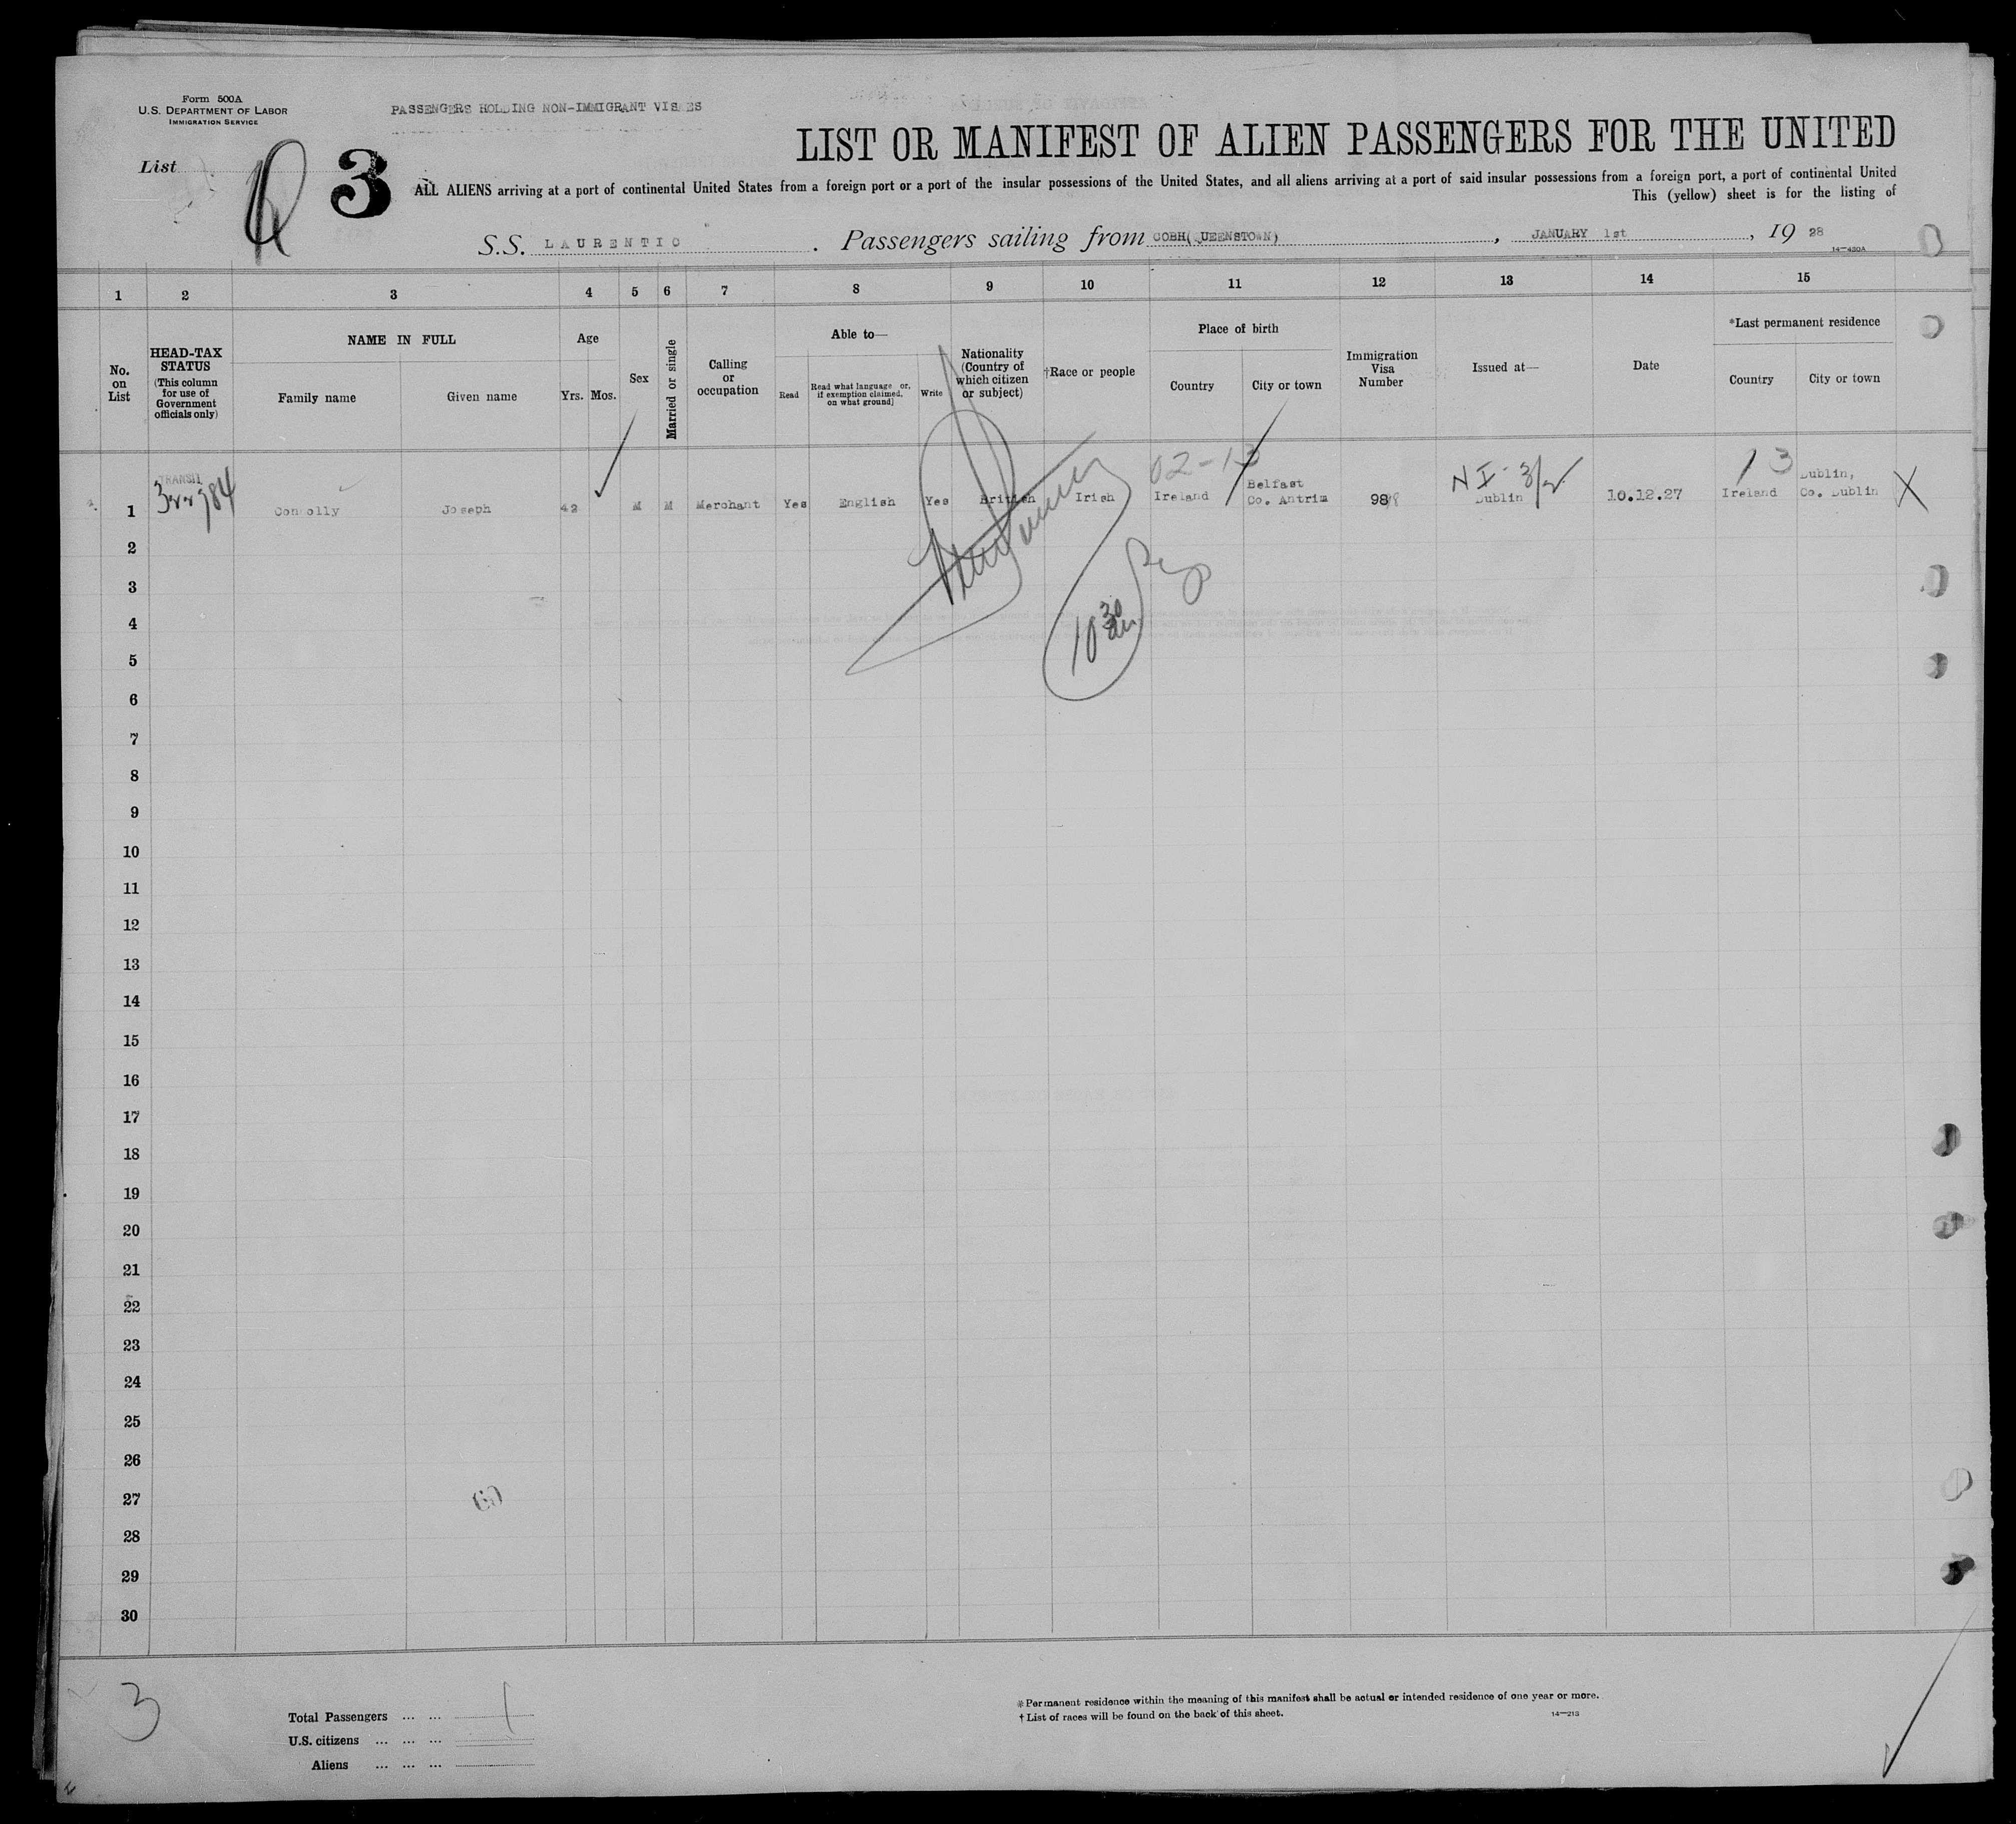 Form 500A
U.S. DEPARTMENT OF LABOR
IMMIGRATION SERVICE
PASSENGERS HOLDING NON-IMMIGRANT VISAES
List
3
LIST OR MANIFEST OF ALIEN PASSENGERS FOR THE UNITED
ALL ALIENS arriving at a port of continental United States from a foreign port or a port of the insular possessions of the United States, and all aliens arriving at a port of said insular possessions from a foreign port, a port of continental United
This (yellow) sheet is for the listing of
S.S. LAURENTIC . Passengers sailing from COBH(QUEENSTOWN), JANUARY 1st, 19 28
14—430A
1 2 3 4 5 6 7 8 9 10 11 12 13 14 15
No. on List
HEAD-TAX STATUS
(This column for use of Government officials only)
NAME IN FULL
Family name Given name
Age
Yrs. Mos.
Sex
Married or single
Calling or occupation
Able to—
Read
Read what language or, if exemption claimed, on what ground]
Write
Nationality (Country of which citizen or subject)
†Race or people
Place of birth
Country City or town
Immigration Visa Number
Issued at—
Date
*Last permanent residence
Country City or town
02-13
NI- 3/2
13
TRANSIT
1 Connolly Joseph 42 M M Merchant Yes English Yes British Irish Ireland Belfast Co. Antrim 98 Dublin 10.12.27 Ireland Dublin, Co. Dublin X
2
3
4
10 30
5
6
7
8
9
10
11
12
13
14
15
16
17
18
19
20
21
22
23
24
25
26
27
28
29
30
3
Total Passengers ... ... 1
U.S. citizens ... ... ...
Aliens ... ... ...
* Permanent residence within the meaning of this manifest shall be actual or intended residence of one year or more.
† List of races will be found on the back of this sheet.
14—213